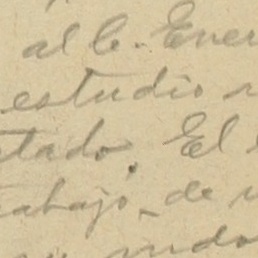 al C. Ener
estudio
tado. El
abajo, de
ndo